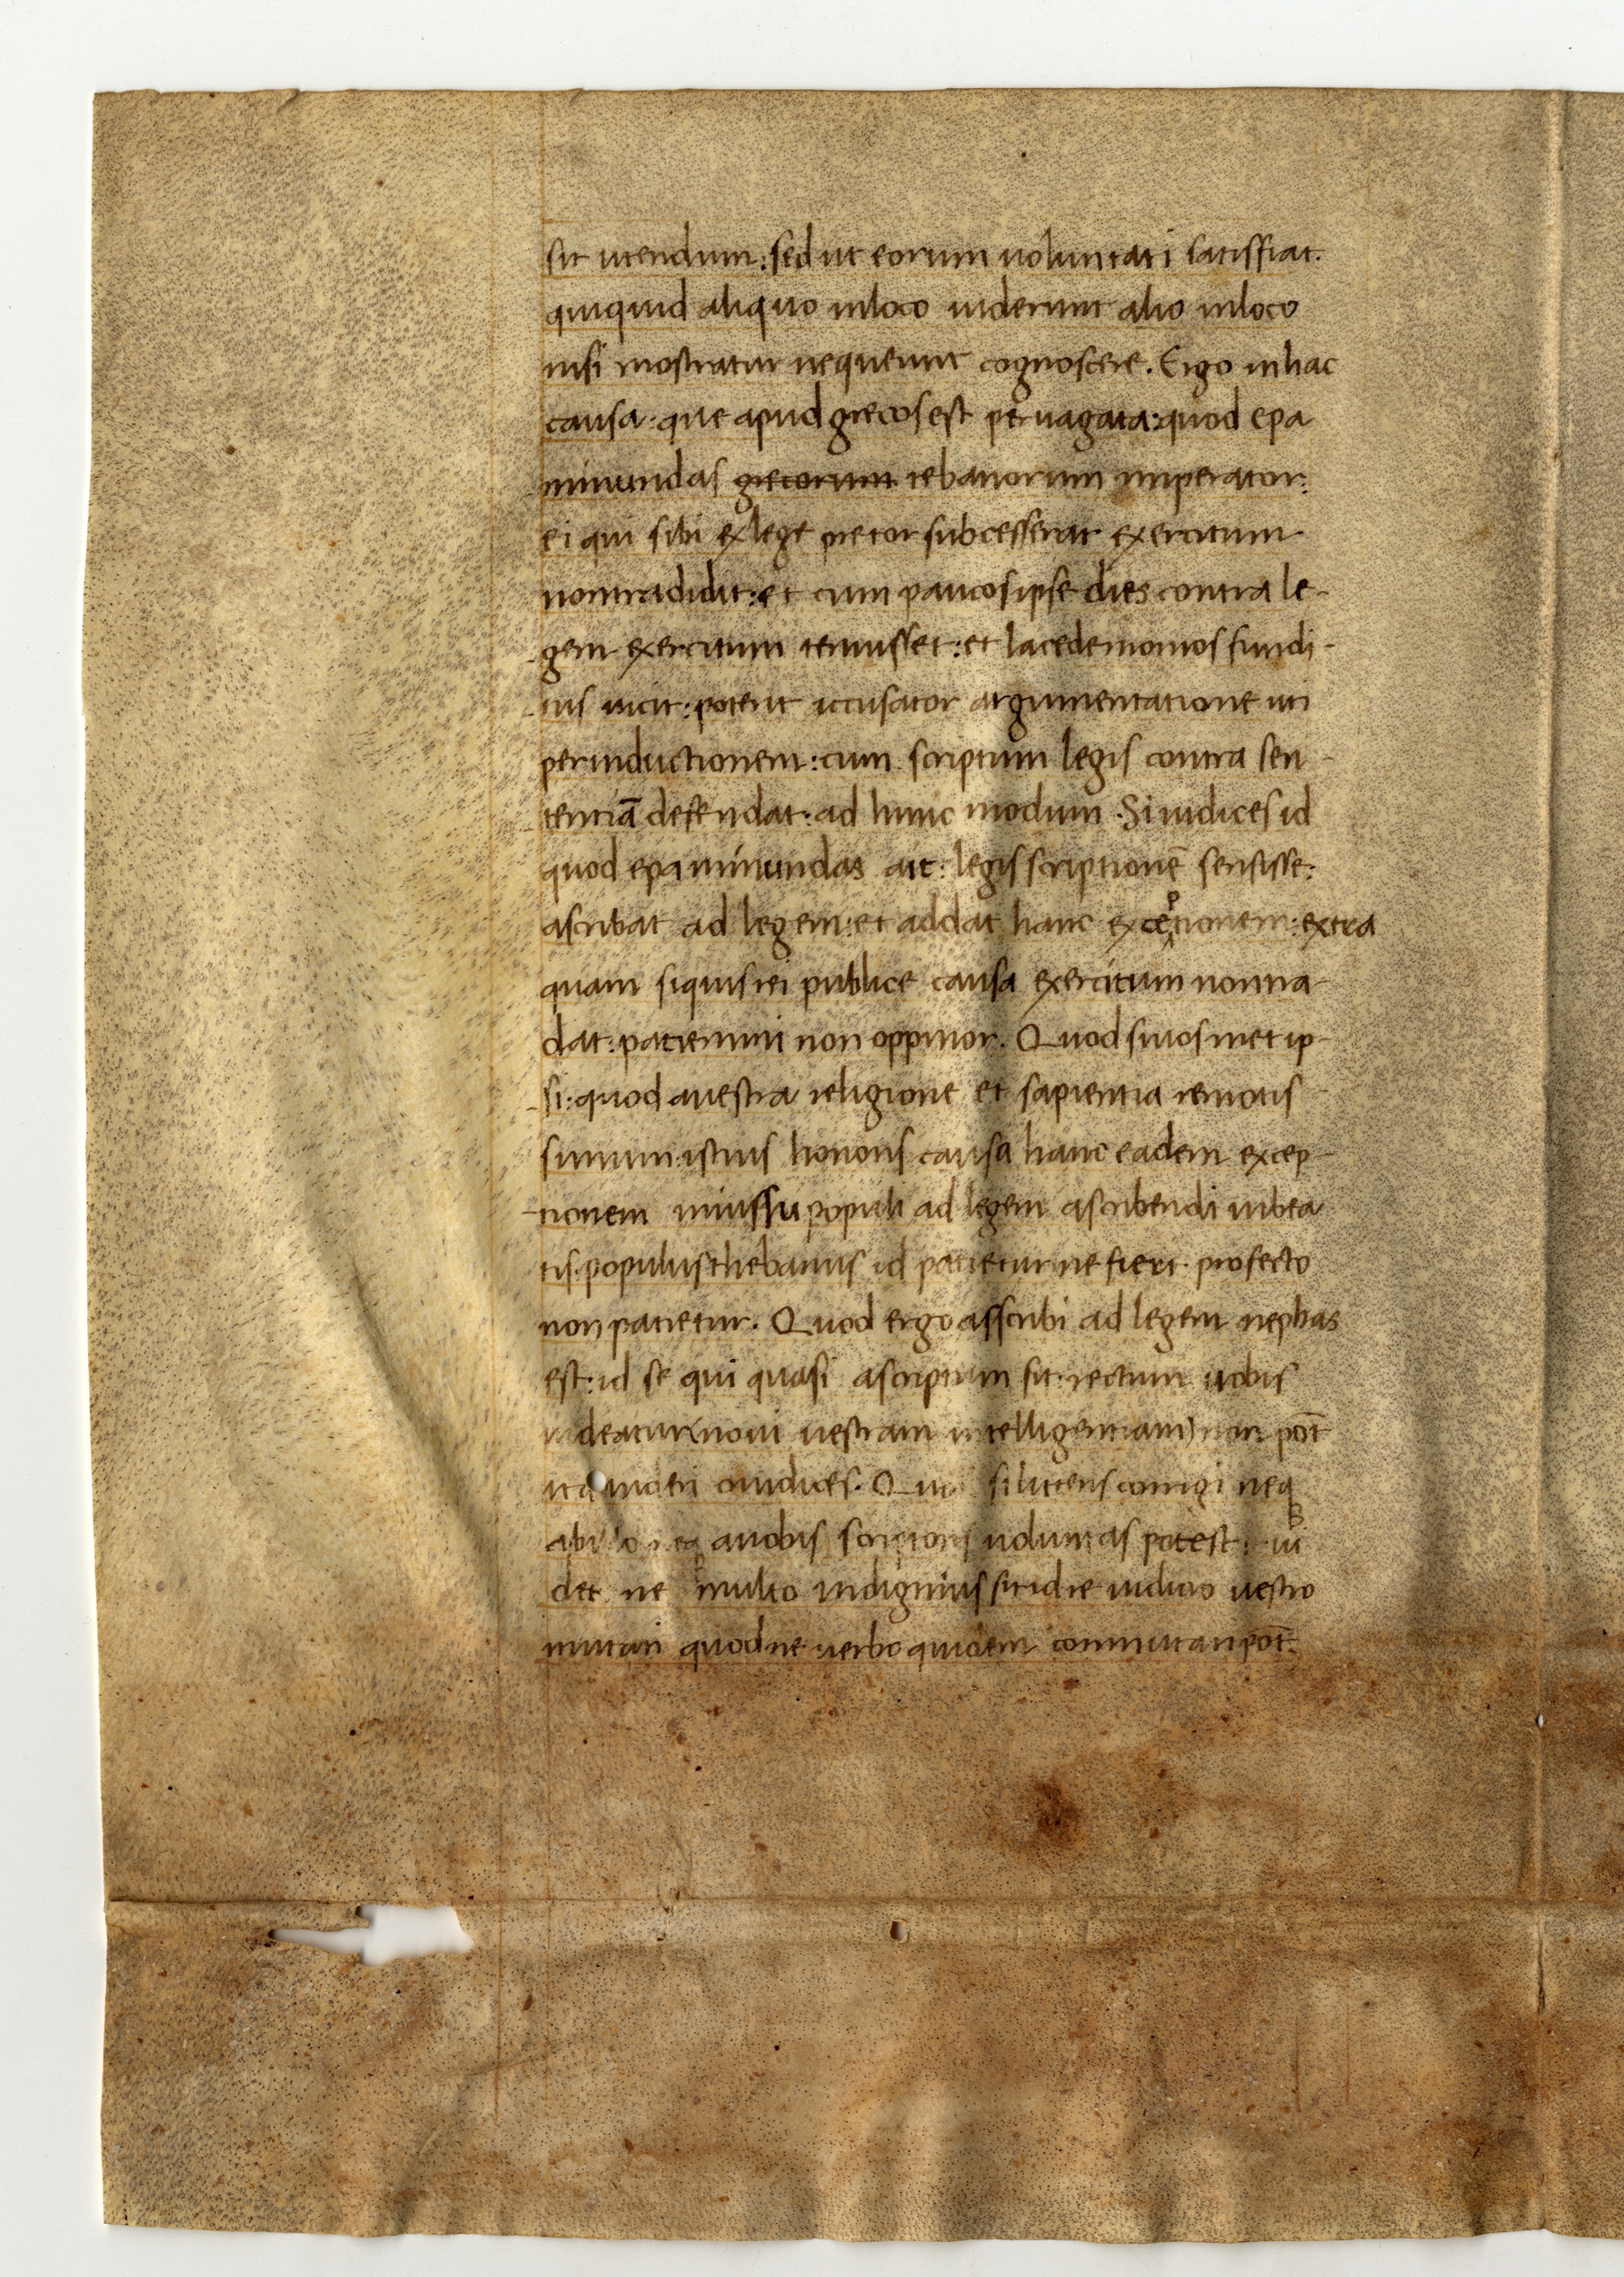 sit utendum: sed ut eorum uoluntati satisfiat.
quiquid aliquo inloco uiderunt alio inloco
nisi mostratur nequeunt cognoscere. Ergo inhac
causa: que apud grecos est peruagata: quod epa
minundas grecorum tebanorum imperator:
ei qui sibi ex lege pretor subcesserat exercitum
nontradidit: et cum paucos ipse dies contra le-
gem exercitum tenuisset: et lacedemonios fundi-
tus uicit: poterit accusator argumentatione uti
perinductionem: cum scriptum legis contra sen-
tentiā defendat: ad hunc modum. Si iudices id
quod epaminundas ait: legis scriptionē sensisse:
ascribat ad legem: et addat hanc exceptionem: extra
quam siquis rei publice causa exercitum nontra-
dat: patiemini non oppinor. Quod si uosmet ip-
si: quod auestra religione et sapientia remotis
simum istius honoris causa hanc eadem excep-
tionem iniussu populi ad legem ascribendi iubea
tis: populus thebanus id patietur ne fiert. profecto
non patietur. Quod ergo asscribi ad legem nephas
est: id se qui quasi ascriptum sit. rectum uobis
uideatur(noui uestram intelligentiam) non pot̄
ita uideri oiudices. Quod si litteris corrigi neq
ab illo neq auobis scriptoris uoluntas potest: ui
det ne multo indignius sit id re iudicio uestro
mutari quod ne uerbo quidem commutari pot̄.